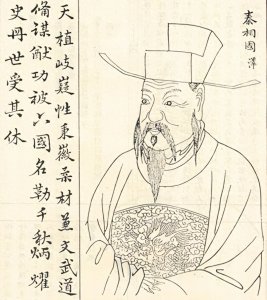 秦相國
天植岐嶷性秉徽柔材兼文武道
備謀猷功被六國名勒千秋炳耀
史冊世受其休